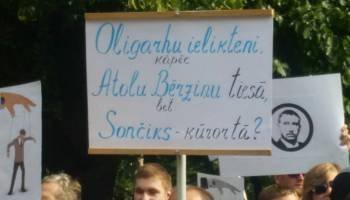 Oligarhu ielikteņi,
kāpēc
Atolu Bērziņu tiesā,
bet
Sončiks - kūrortā?